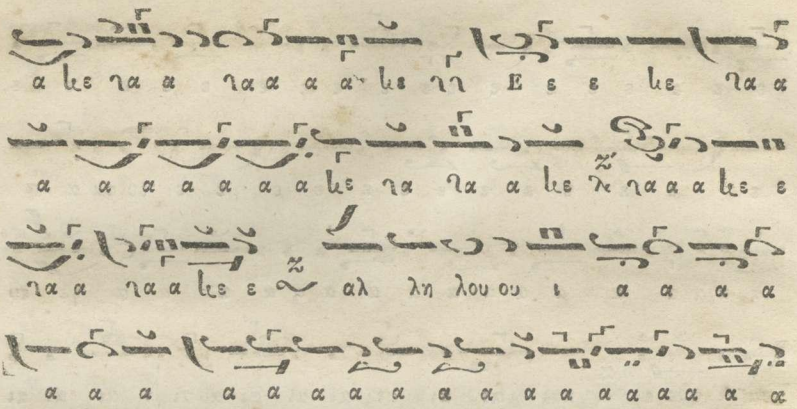 α κε ταα α ταα α α α κε τη Ε ε ε κε τα α
α α α α α α α κε τα τα α κε ταα α κε ε
τα α τα α κε ε αλ λη λου ου ι α α α α
α α α α α α α α α α α α α α α α α